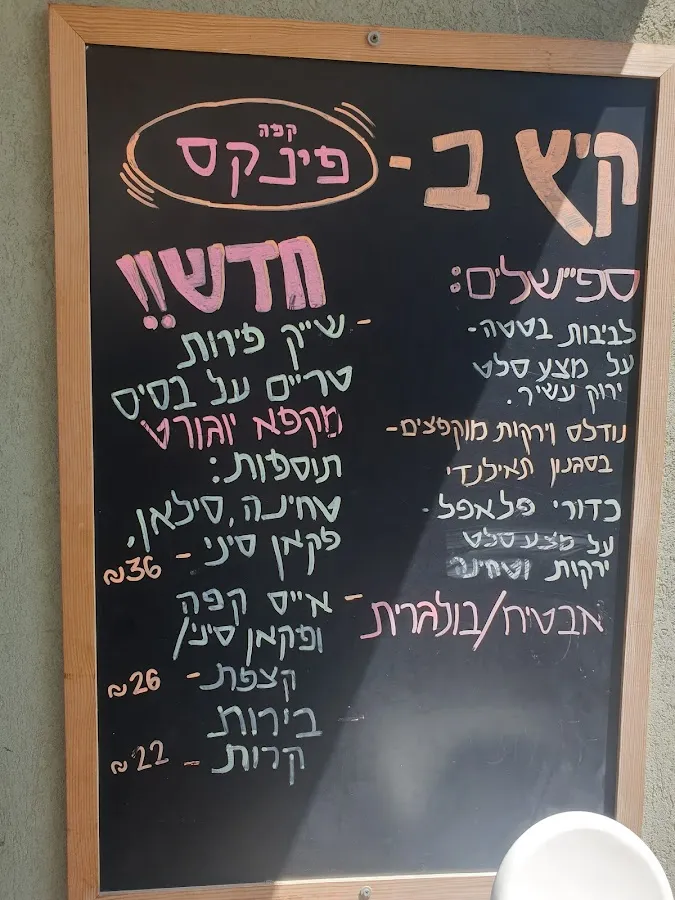 קיץ ב-
קפה
פינקס
ספיישלים:
לביבות בטטה-
על מצע סלט
ירוק עשיר.
נודלס וירקות מוקפצים-
בסגנון תאילנדי
כדורי פלאפל-
על מצע סלט
ירקות וטחינה
אבטיח/בולגרית
חדש!!
- שייק פירות
טריים על בסיס
מקפא יוגורט
תוספות:
טחינה, סילאן,
פקאן סיני - 36₪
- אייס קפה
ופקאן סיני/
קצפת - 26₪
- בירות
קרות - 22₪